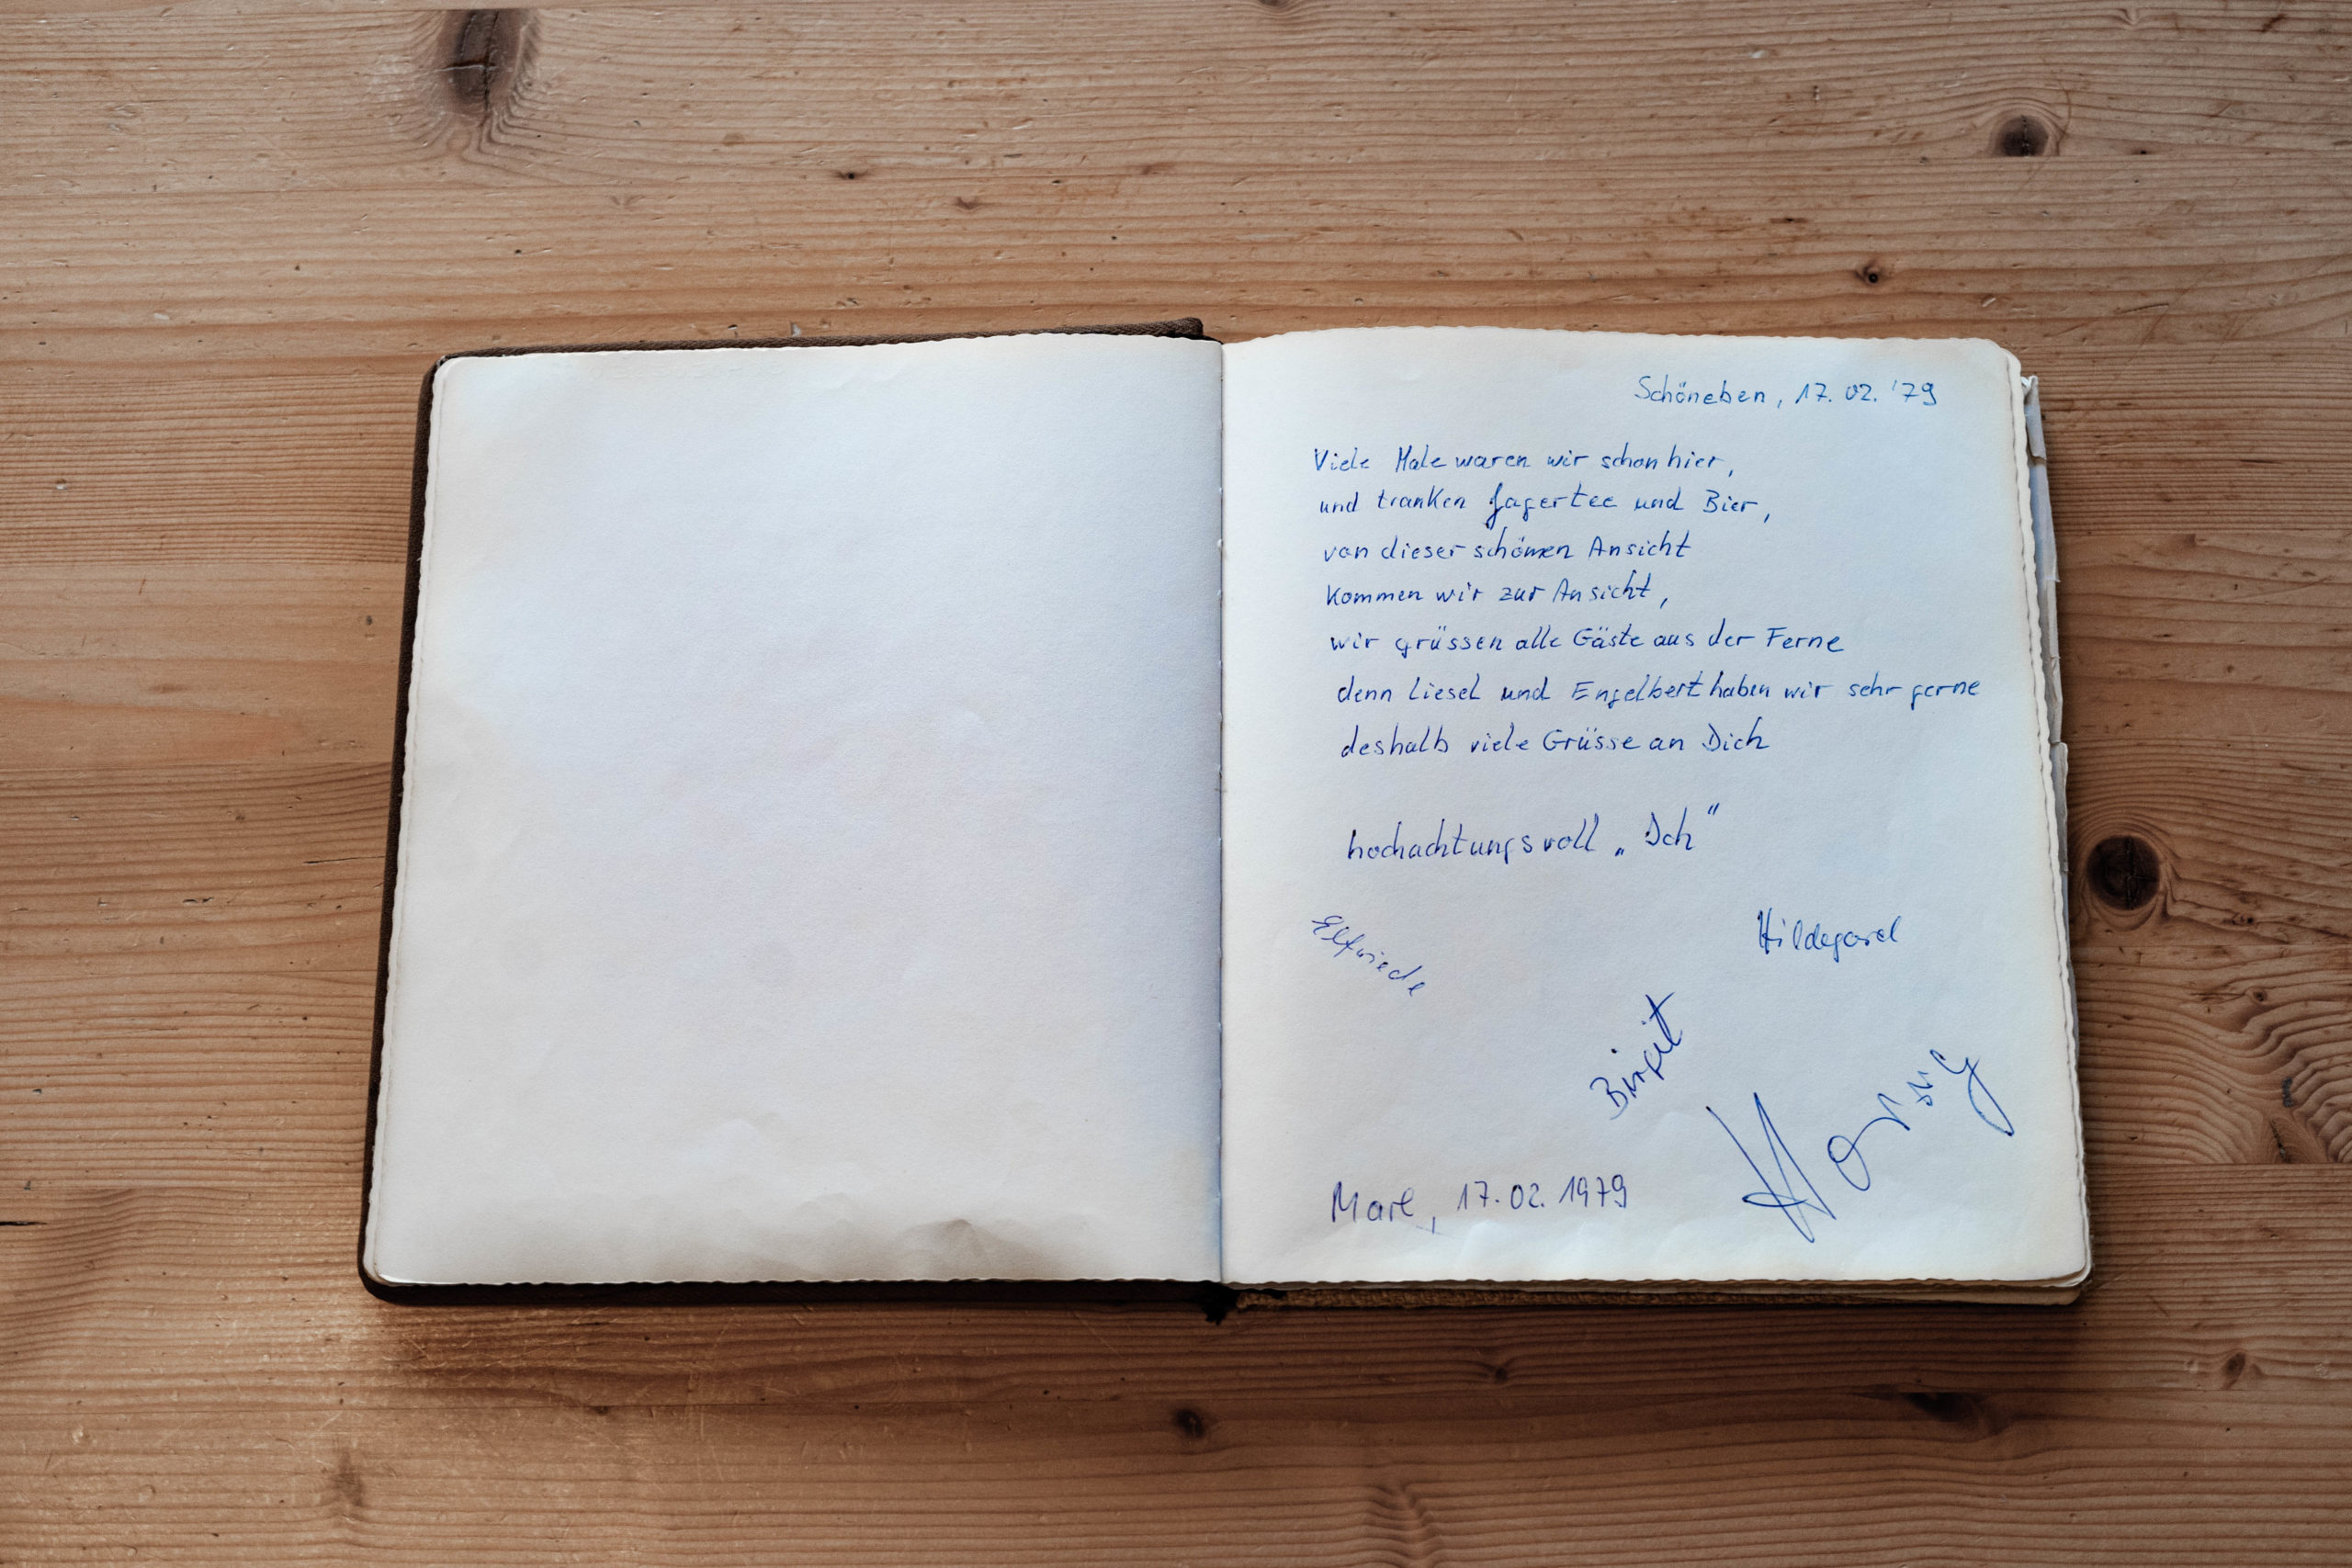 Schöneben, 17. 02. '79
Viele Male waren wir schon hier,
und tranken Jagertee und Bier,
von dieser schönen Ansicht
kommen wir zur Ansicht,
wir grüssen alle Gäste aus der Ferne
denn Liesel und Engelbert haben wir sehr gerne
deshalb viele Grüsse an Dich
hochachtungsvoll „Ich"
Elfriede
Hildegard
Birgit
Marl, 17.02.1979